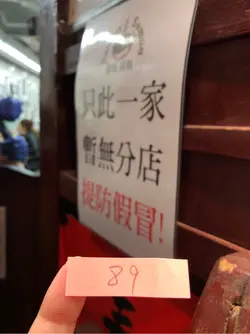 只此一家
暫無分店
提防假冒!
89